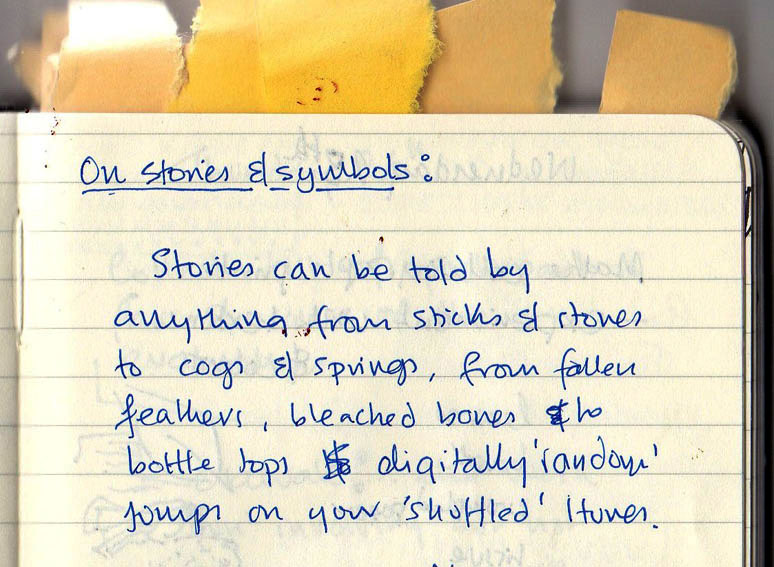 On stories & symbols:
Stories can be told by
anything from sticks & stones
to cogs & springs, from fallen
feathers, bleached bones to
bottle tops & digitally 'random'
jumps on your 'shuffled' Itunes.